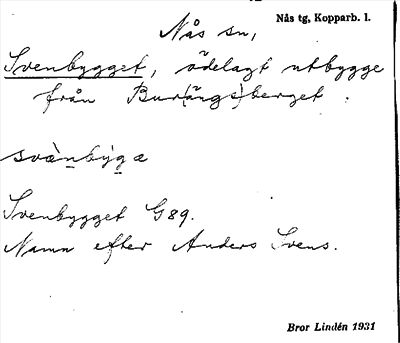 Nås sn,
Nås tg, Kopparb. l.
Svenbygget, ödelagt utbygge
från Bur(ängs)berget.
svànbýga
Svenbygget G89.
Namn efter Anders Svens.
Bror Lindén 1931